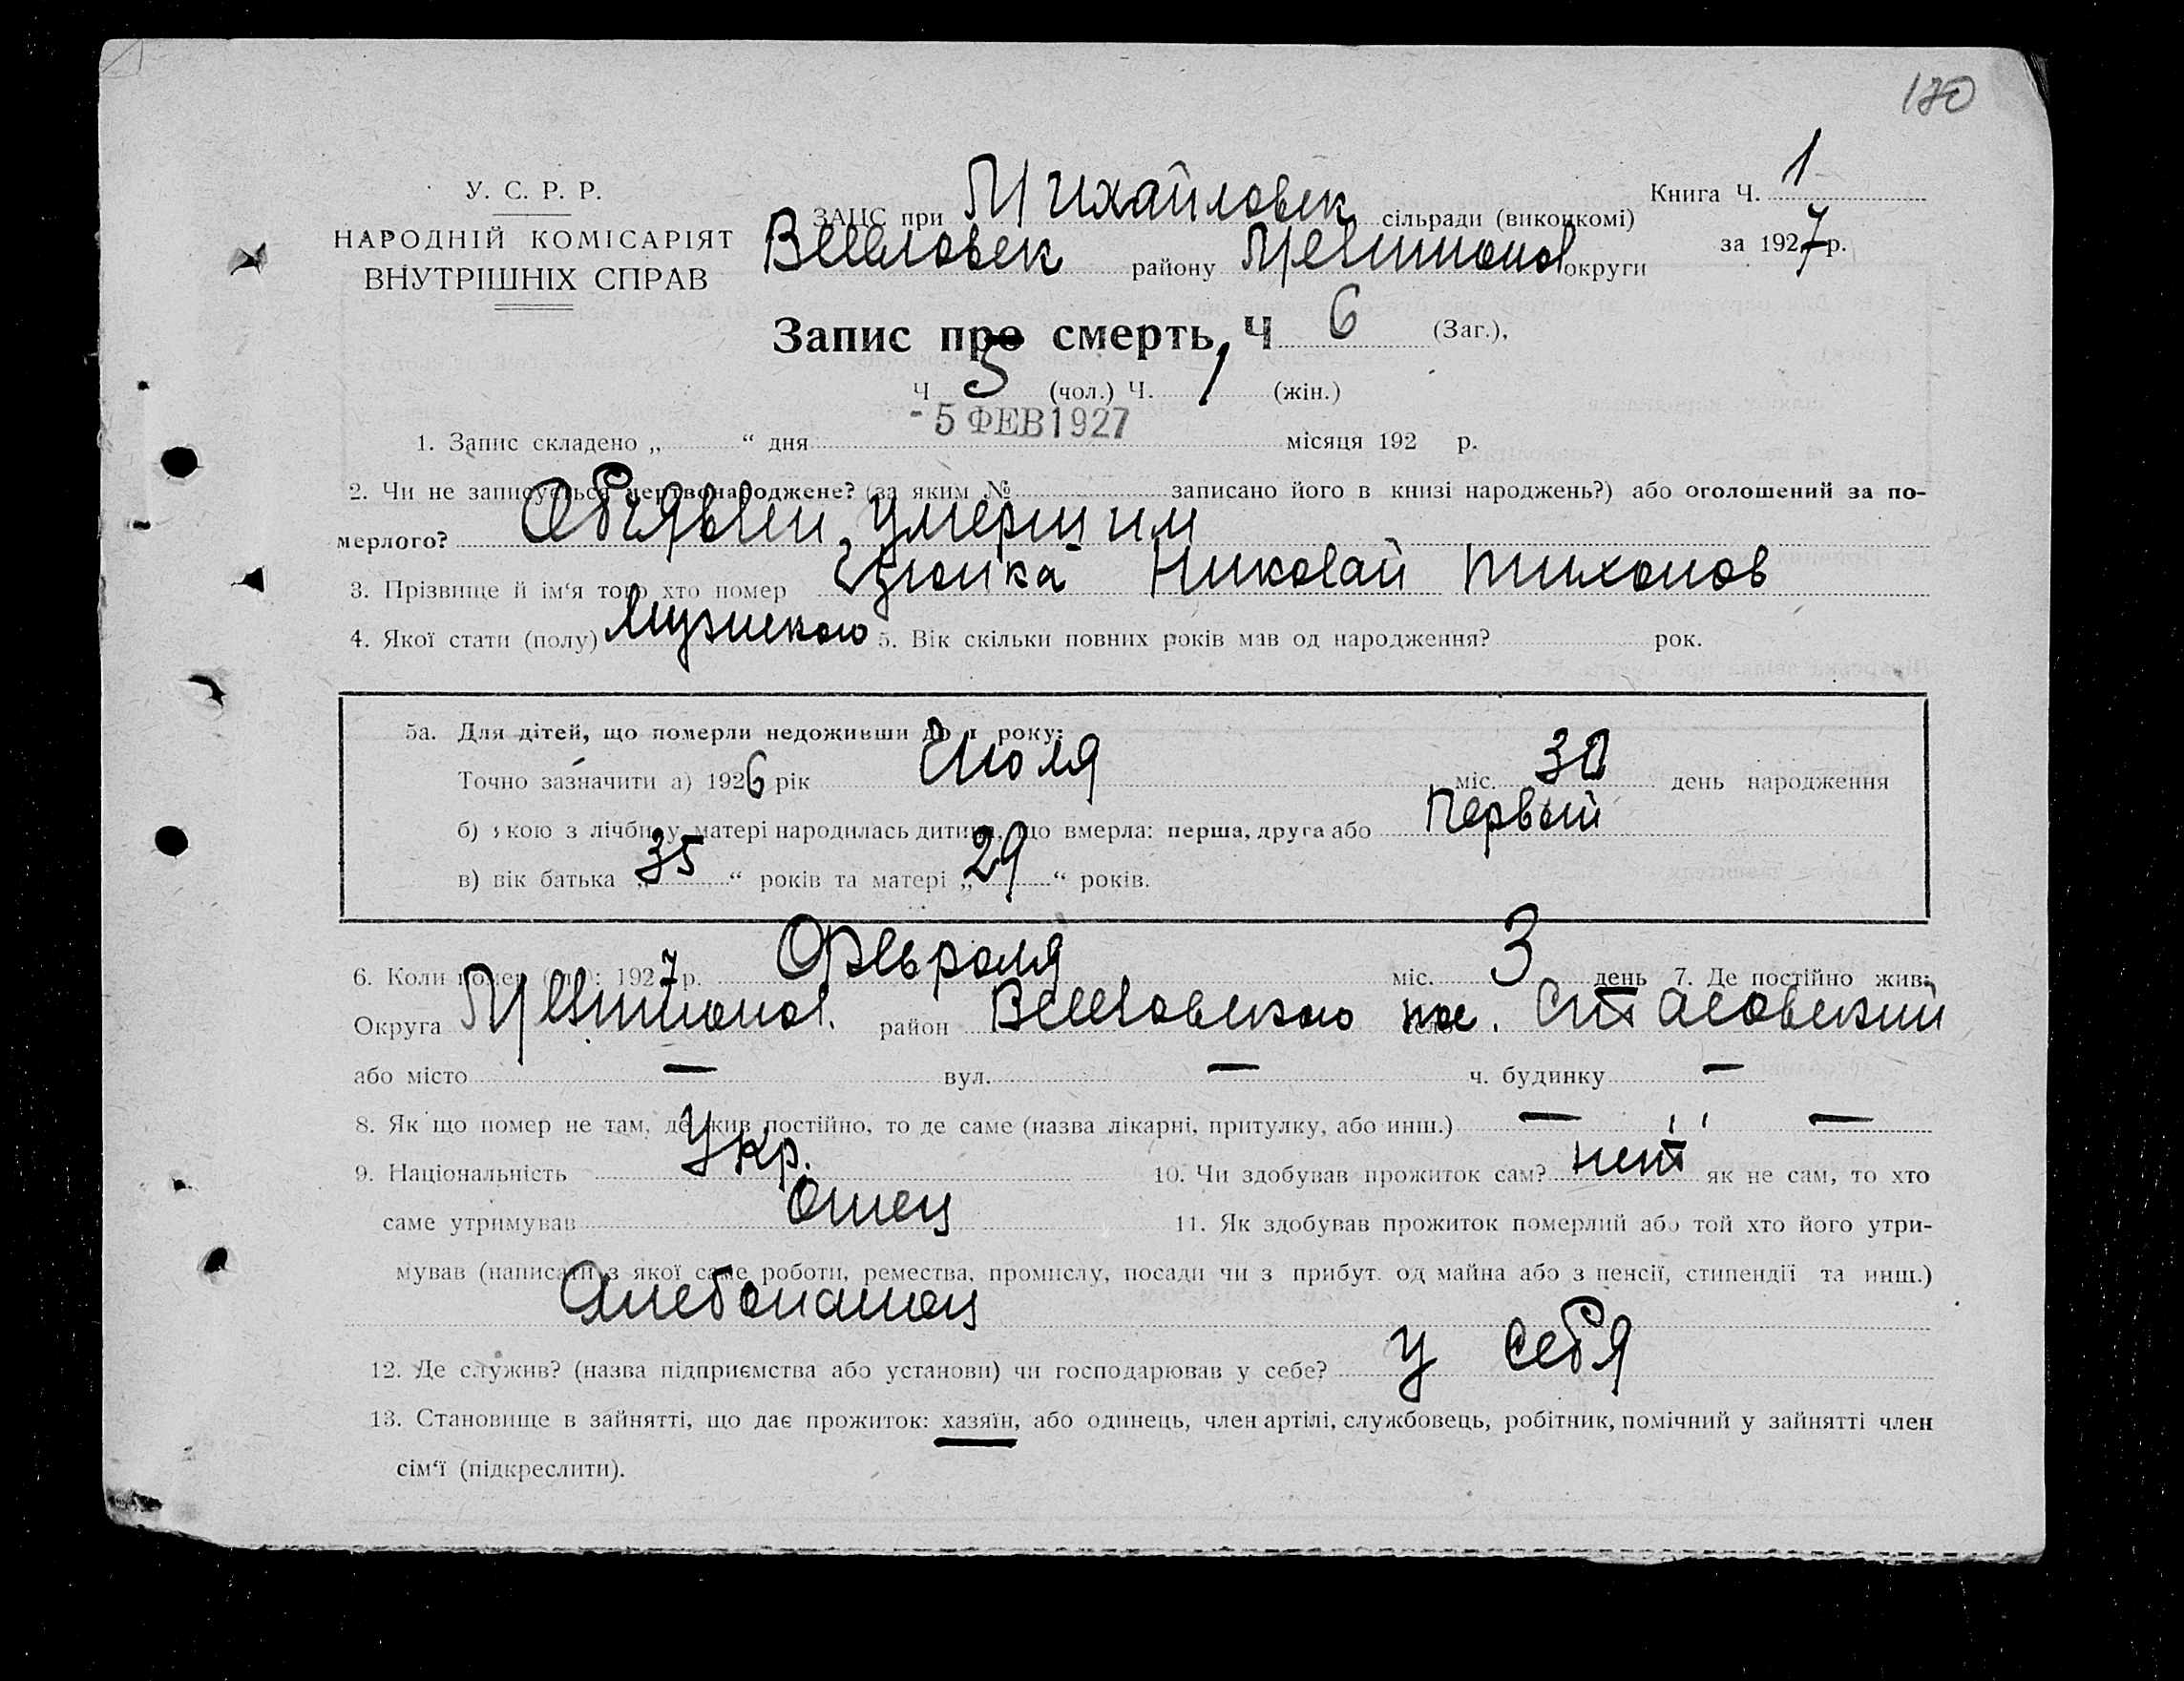 170
У. С. Р. Р.
НАРОДНІЙ КОМІСАРІЯТ
ВНУТРІШНІХ СПРАВ
Книга Ч. 1
за 1927 р.
ЗАЦС при Михайловск сільради (виконкомі)
району округи
Запис про смерть Ч 6 (Заг.),
Ч 5 (чол.) Ч. 1 (жін.)
1. Запис складено „ “ дня -5 ФЕВ 1927 місяця 192 р.
2. Чи не записується мертвонароджене? (за яким № записано його в книзі народжень?) або оголошений за по-
мерлого? умершим
3. Прізвище й ім‘я того хто помер Николай Тихонов
4. Якої стати (полу) Мужского 5. Вік скільки повних років мав од народження? рок.
5а. Для дітей, що померли недоживши до 1 року:
Точно зазначити а) 1926 рік Июля міс. 30 день народження
б) якою з лічби у матері народилась дитина, що вмерла: перша, друга або Первый
в) вік батька „ 35 “ років та матері „ 29 “ років.
6. Коли помер (ла): 1927 р. Февраля міс. 3 день 7. Де постійно жив:
Округа район пос. Стасовский
або місто — вул. — ч. будинку —
8. Як що помер не там, де жив постійно, то де саме (назва лікарні, притулку, або инш.) — —
9. Національність Укр. 10. Чи здобував прожиток сам? нет як не сам, то хто
саме утримував Отец 11. Як здобував прожиток померлий або той хто його утри-
мував (написати з якої саме роботи, ремества, промислу, посади чи з прибут. од майна або з пенсії, стипендії та инш.)
Хлебопашец
12. Де служив? (назва підприємства або установи) чи господарював у себе? у себя
13. Становище в зайнятті, що дає прожиток: хазяїн, або одинець, член артілі, службовець, робітник, помічний у зайнятті член
сім‘ї (підкреслити).